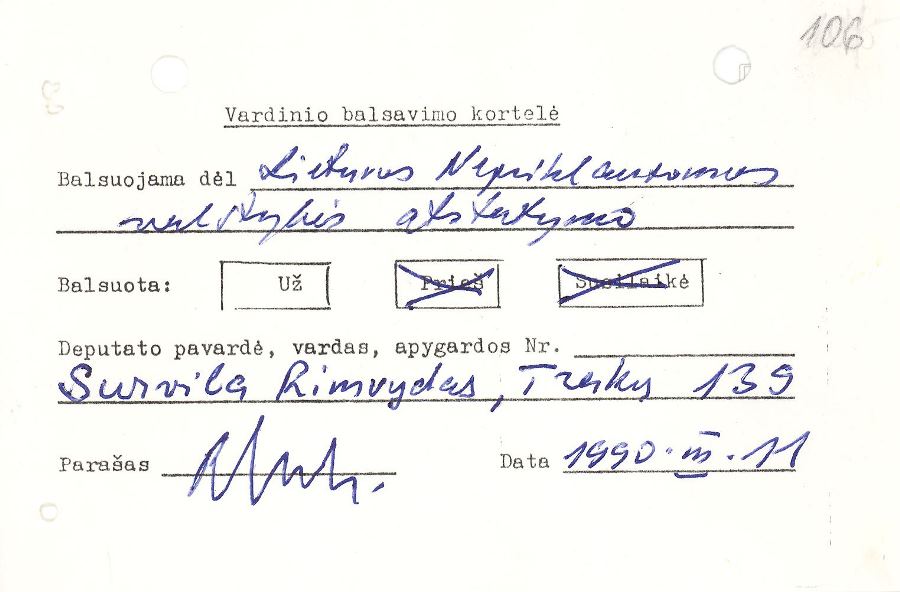 106
Vardinio balsavimo kortelė
Balsuojama dėl Lietuvos Nepriklausomos
valstybės atstatymo
Balsuota: Už Prieš Susilaikė
Deputato pavardė, vardas, apygardos Nr.
Survila Rimvydas, Trakų 139
Parašas Data 1990.III.11